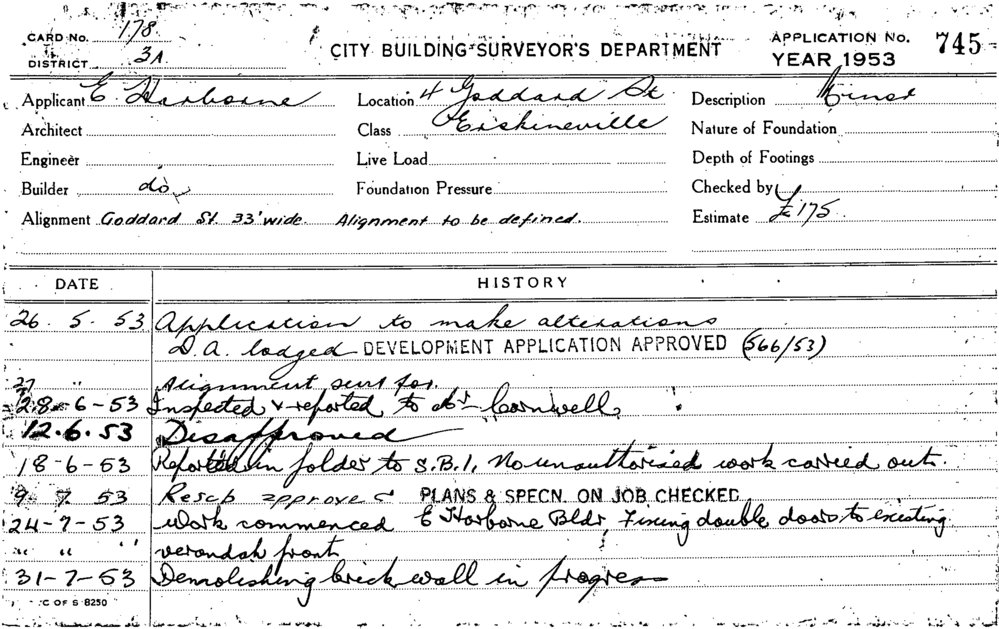 CARD No. 178
DISTRICT 3A
CITY BUILDING SURVEYOR'S DEPARTMENT
APPLICATION No. 745
YEAR 1953
Applicant E Harborne
Location 4 Goddard St
Description Minor
Architect
Class Erskineville
Nature of Foundation
Engineer
Live Load
Depth of Footings
Builder do
Foundation Pressure
Checked by
Alignment Goddard St. 33' wide. Alignment to be defined.
Estimate £175
DATE HISTORY
26. 5. 53 Application to make alterations
D.A. lodged DEVELOPMENT APPLICATION APPROVED (566/53)
27 " Alignment sent for.
28-6-53 Inspected & reported to Mr Cornwell
12.6.53 Disapproved
18-6-53 Reported in folder to S.B.I. No unauthorised work carried out.
9. 7 53 approved PLANS & SPECN. ON JOB CHECKED
24-7-53 Work commenced E Harborne Bldr, Fixing double doors to existing
" " " verandah front
31-7-53 Demolishing brick wall in progress
C OF S 8250